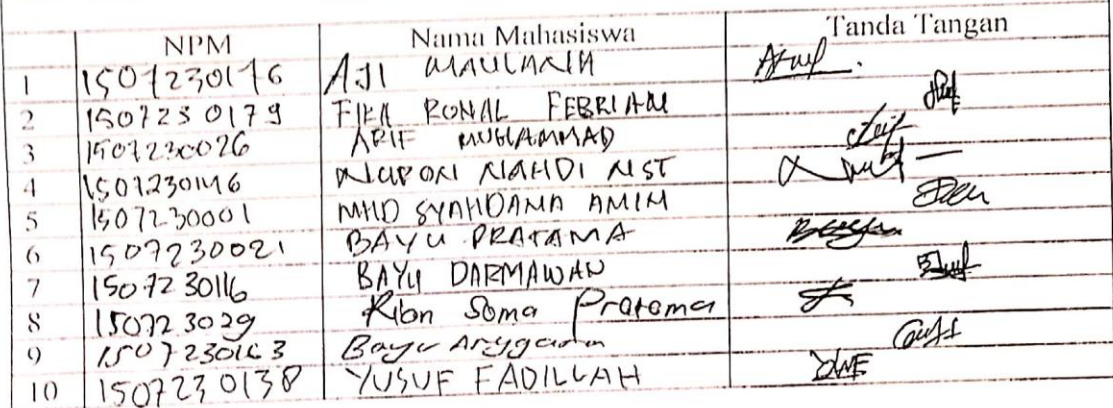 NPM Nama Mahasiswa Tanda Tangan
1 1507230176 AJI MAULANA
2 1507230179 FIKA RONAL FEBRIAN
3 1507230026 ARIF MUHAMMAD
4 1507230146 NURPON NAHDI NST
5 1507230001 MHD SYAHDANA AMIN
6 1507230021 BAYU PRATAMA
7 1507230116 BAYU DARMAWAN
8 150723029 Soma Pratama
9 1507230163 Bayu
10 1507230138 YUSUF FADILLAH